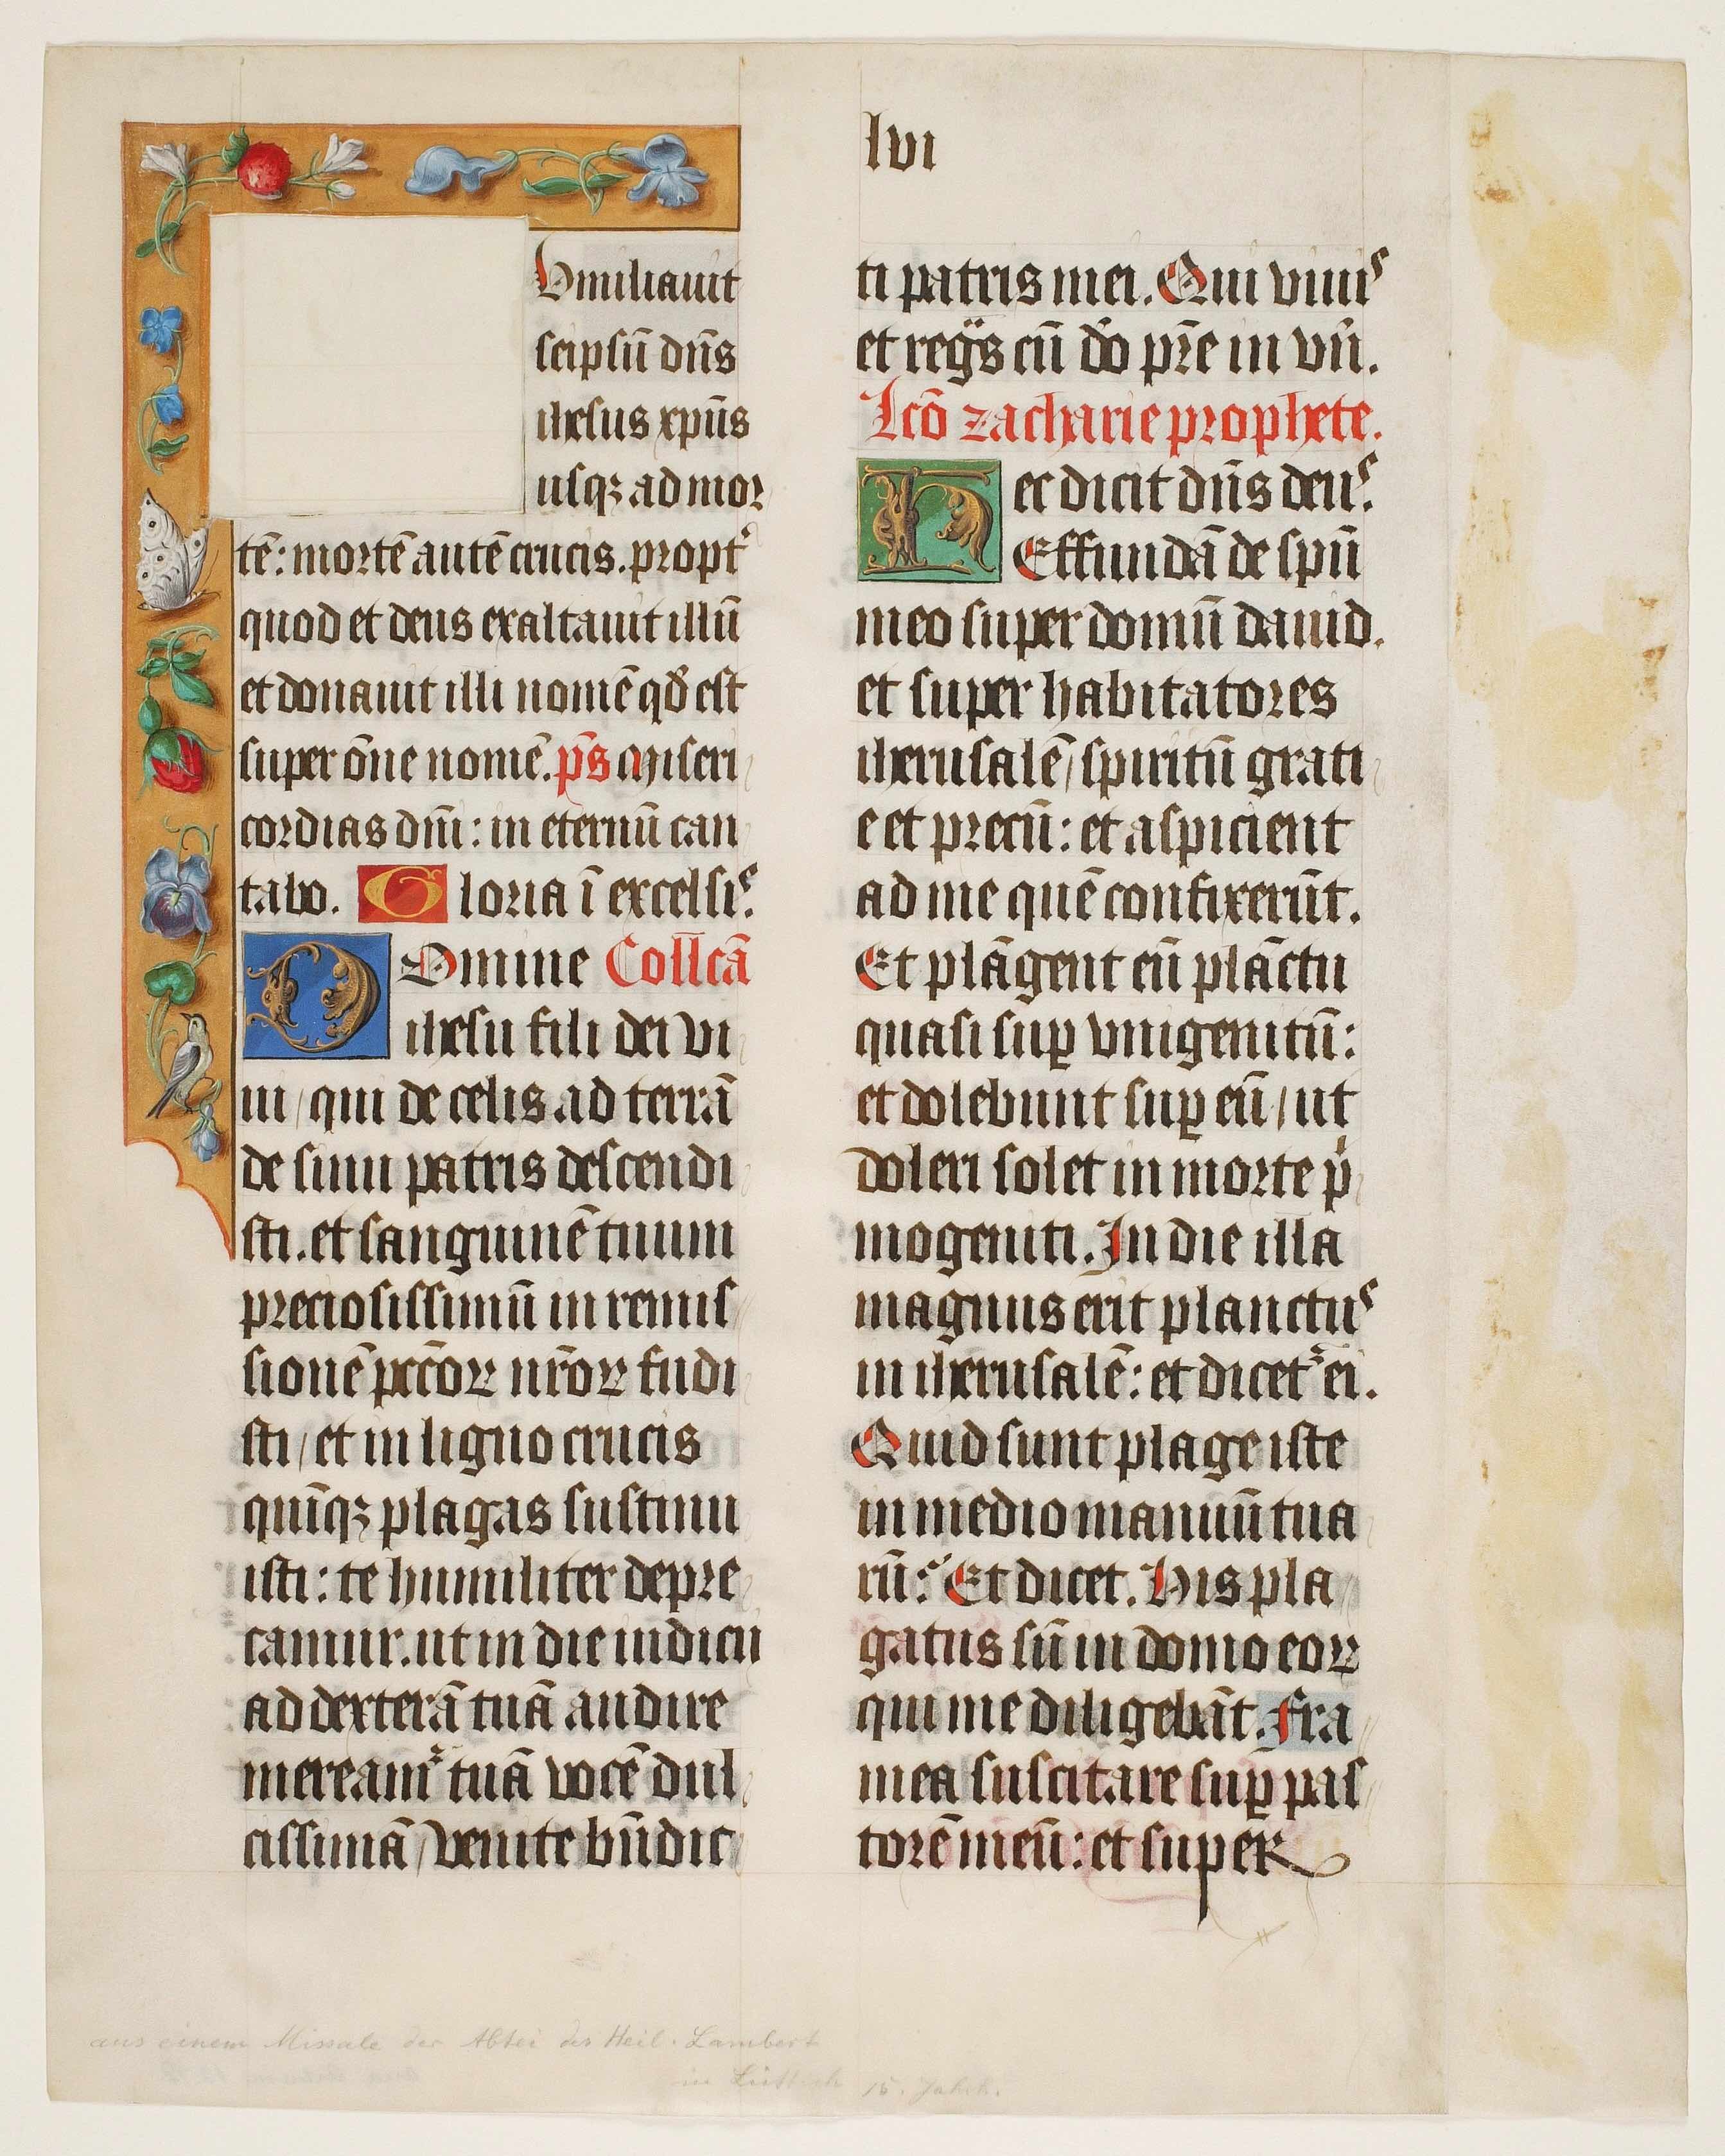 lvi
Humiliauit
seipsū dn̄s
ihesus xpūs
usqꝫ ad moꝛ
tē: moꝛtē autē crucis. propt᷑
quod et deus exaltauit illū
et donauit illi nomē qd̄ est
super ōne nomē. ps̄ Miseri
coꝛdias dn̄i: in eternū can
tabo. Gloꝛia ī excelsiꝰ.
Domine Coll̄cā
ihesu fili dei vi
ui / qui de celis ad terrā
de sinu patris descendi
sti. et sanguinē tuum
preciosissimū in remis
sionē pcc̄oꝝ nr̄oꝝ fudi
sti / et in ligno crucis
quīqꝫ plagas sustinu
isti: te humiliter depꝛe
camur. ut in die iudicii
ad dexterā tuā audire
mereamᷣ tuā vocē dul
cissimā / Venite bn̄dic
ti patris mei. Qui viuiꝰ
et regͥs cū dō pꝛ̄e in vn̄.
Lcō zacharie prophete.
Hec dicit dn̄s deuꝰ.
Effundā de spū
meo super domū dauid.
et super habitatoꝛes
iherusalē / spiritū grati
e et pꝛecū: et aspicient
ad me quē confixerūt.
Et plāgent eū plāctu
quasi suꝑ vnigenitū:
et dolebunt suꝑ eū / ut
doleri solet in moꝛte pͥ
mogeniti. In die illa
magnus erit planctuꝰ
in iherusalē: et dicet᷑ ei.
Quid sunt plage iste
in medio manuū tua
rū? Et dicet. His pla
gatus sū in domo eoꝝ
qui me diligebāt. Fra
mea suscitare suꝑ pas
toꝛē meū: et super
aus einem Missale der Abtei des Heil. Lambert
in Lüttich 15. Jahrh.